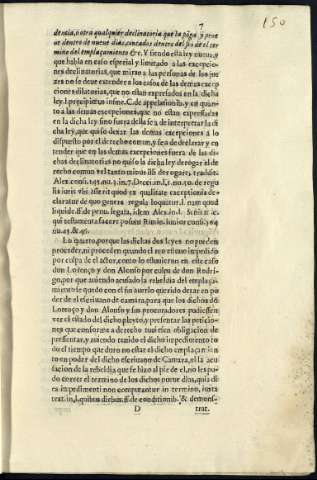 7
150
dencia, o otra qualquier declinatoria que la põga y prue
ue dentro de nueue dias, contados dentro del fin de el ter
mino del emplaçamiento &c. Y siendo esta ley
que habla en caso especial y limitado a las excepcio-
nes declinatorias, que miran a las personas de los jue
zes no se deue extender a los casos de las demas excep
ciones dilatorias, que no estan expressados en la dicha
ley. l. præcipimus in fine. C. de appellationib. y en quan-
to a las demas excepciones, que no estan expressadas
en la dicha ley sino fuera desta se à de interpretar la di
cha ley, que quiso dexar las demas excepciones a lo
dispuesto por el derecho comun, y se à de declarar y en
tender que en las demas excepciones fuera de las di
chas declinatorias no quiso la dicha ley derogar el de
recho comun
Alex. consi.
lis iuris vbi asserit quod ex qualitate exceptionis de-
claratur de quo genere regula loquatur. l. nam quod
liquide. ff. de penu. legata. idem Alex. in l. si
qui testamenta facere possunt
nu. 45 & 46.
Lo quarto, porque las dichas dos leyes no pueden
proceder, ni proceden quando el reo estuuo impedido
por culpa de el actor, como lo estuuieron en este caso
don Lorenço y don Alonso por culpa de don Rodri-
go, por que auiendo acusado la rebeldia del emplaça-
miento se quedo con el sin auerlo querido dexar en po
der de el escriuano de camara, para que los dichos dõ
Lorenço y don Alonso y sus procuradores pudiessen
ver el estado del dicho pleyto, y presentar las peticio-
nes que conforme a derecho tuuiesen obligacion de
presentar, y auiendo tenido el dicho impedimento to
do el tiempo que duro no estar el dicho emplaçamien
to en poder del dicho escriuano de Camara, ni la acu
sacion de la rebeldia que se hizo al pie de el, no les pu
do correr el termino de los dichos nueue dias, quia di
es impedimenti non computantur in termino,
trat. in. l. quibus diebus. ff. de conditionib. & demons-
D
trat.